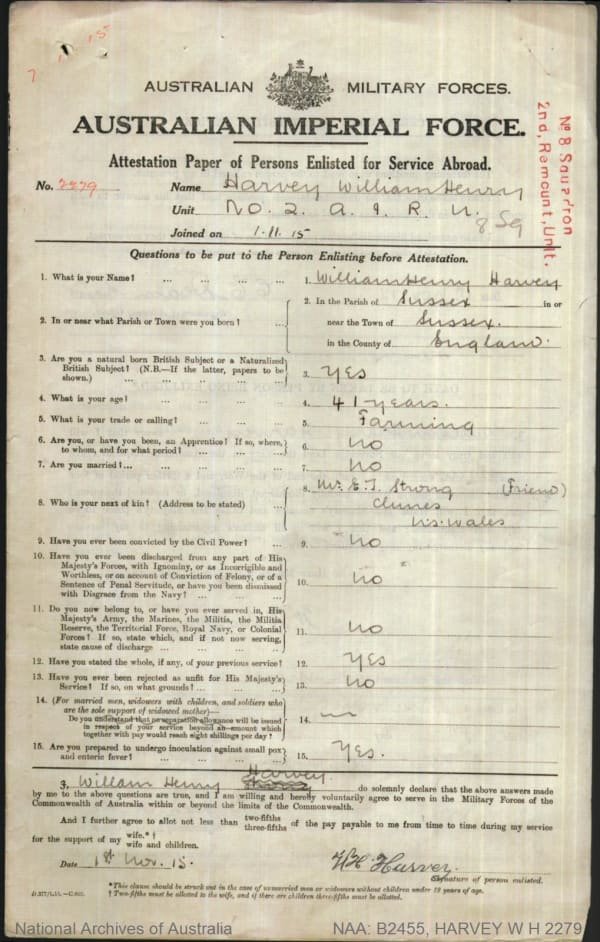 7 11 15
AUSTRALIAN MILITARY FORCES.
AUSTRALIAN IMPERIAL FORCE.
Attestation Paper of Persons Enlisted for Service Abroad.
No. 2279 Name Harvey William Henry
Unit No. 2. A. I. R. U. 8 Sq
Joined on 1.11.15
No 8 Squadron
2nd, Remount, Unit.
Questions to be put to the Person Enlisting before Attestation.
1. What is your Name? ... ... ... ... 1. William Henry Harvey
2. In or near what Parish or Town were you born? ... 2. In the Parish of Sussex in or
near the Town of Sussex.
in the County of England.
3. Are you a natural born British Subject or a Naturalized
British Subject? (N.B.—If the latter, papers to be
shown.) ... ... ... ... 3. Yes
4. What is your age? ... ... ... ... 4. 41 years.
5. What is your trade or calling? ... ... ... 5. Farming
6. Are you, or have you been, an Apprentice? If so, where,
to whom, and for what period? ... ... ... 6. No
7. Are you married? ... ... ... ... 7. No
8. Who is your next of kin? (Address to be stated) ... 8. Mr. E. J. Strong (Friend)
Clunes
N.S. Wales
9. Have you ever been convicted by the Civil Power? ... 9. No
10. Have you ever been discharged from any part of His
Majesty's Forces, with Ignominy, or as Incorrigible and
Worthless, or on account of Conviction of Felony, or of a
Sentence of Penal Servitude, or have you been dismissed
with Disgrace from the Navy? ... ... ... 10. No
11. Do you now belong to, or have you ever served in, His
Majesty's Army, the Marines, the Militia, the Militia
Reserve, the Territorial Force, Royal Navy, or Colonial
Forces? If so, state which, and if not now serving,
state cause of discharge ... ... ... ... 11. No
12. Have you stated the whole, if any, of your previous service? 12. Yes
13. Have you ever been rejected as unfit for His Majesty's
Service? If so, on what grounds? ... ... ... 13. No
14. (For married men, widowers with children, and soldiers who
are the sole support of widowed mother)—
Do you understand that no separation allowance will be issued
in respect of your service beyond an amount which
together with pay would reach eight shillings per day? 14. —
15. Are you prepared to undergo inoculation against small pox
and enteric fever? ... ... ... ... 15. Yes.
Harvey.
I, William Henry do solemnly declare that the above answers made
by me to the above questions are true, and I am willing and hereby voluntarily agree to serve in the Military Forces of the
Commonwealth of Australia within or beyond the limits of the Commonwealth.
And I further agree to allot not less than two-fifths three-fifths of the pay payable to me from time to time during my service
for the support of my wife.*† wife and children.
Date 1st Nov. 15. W H. Harvey.
Signature of person enlisted.
*This clause should be struck out in the case of unmarried men or widowers without children under 18 years of age.
† Two-fifths must be allotted to the wife, and if there are children three-fifths must be allotted.
National Archives of Australia NAA: B2455, HARVEY W H 2279